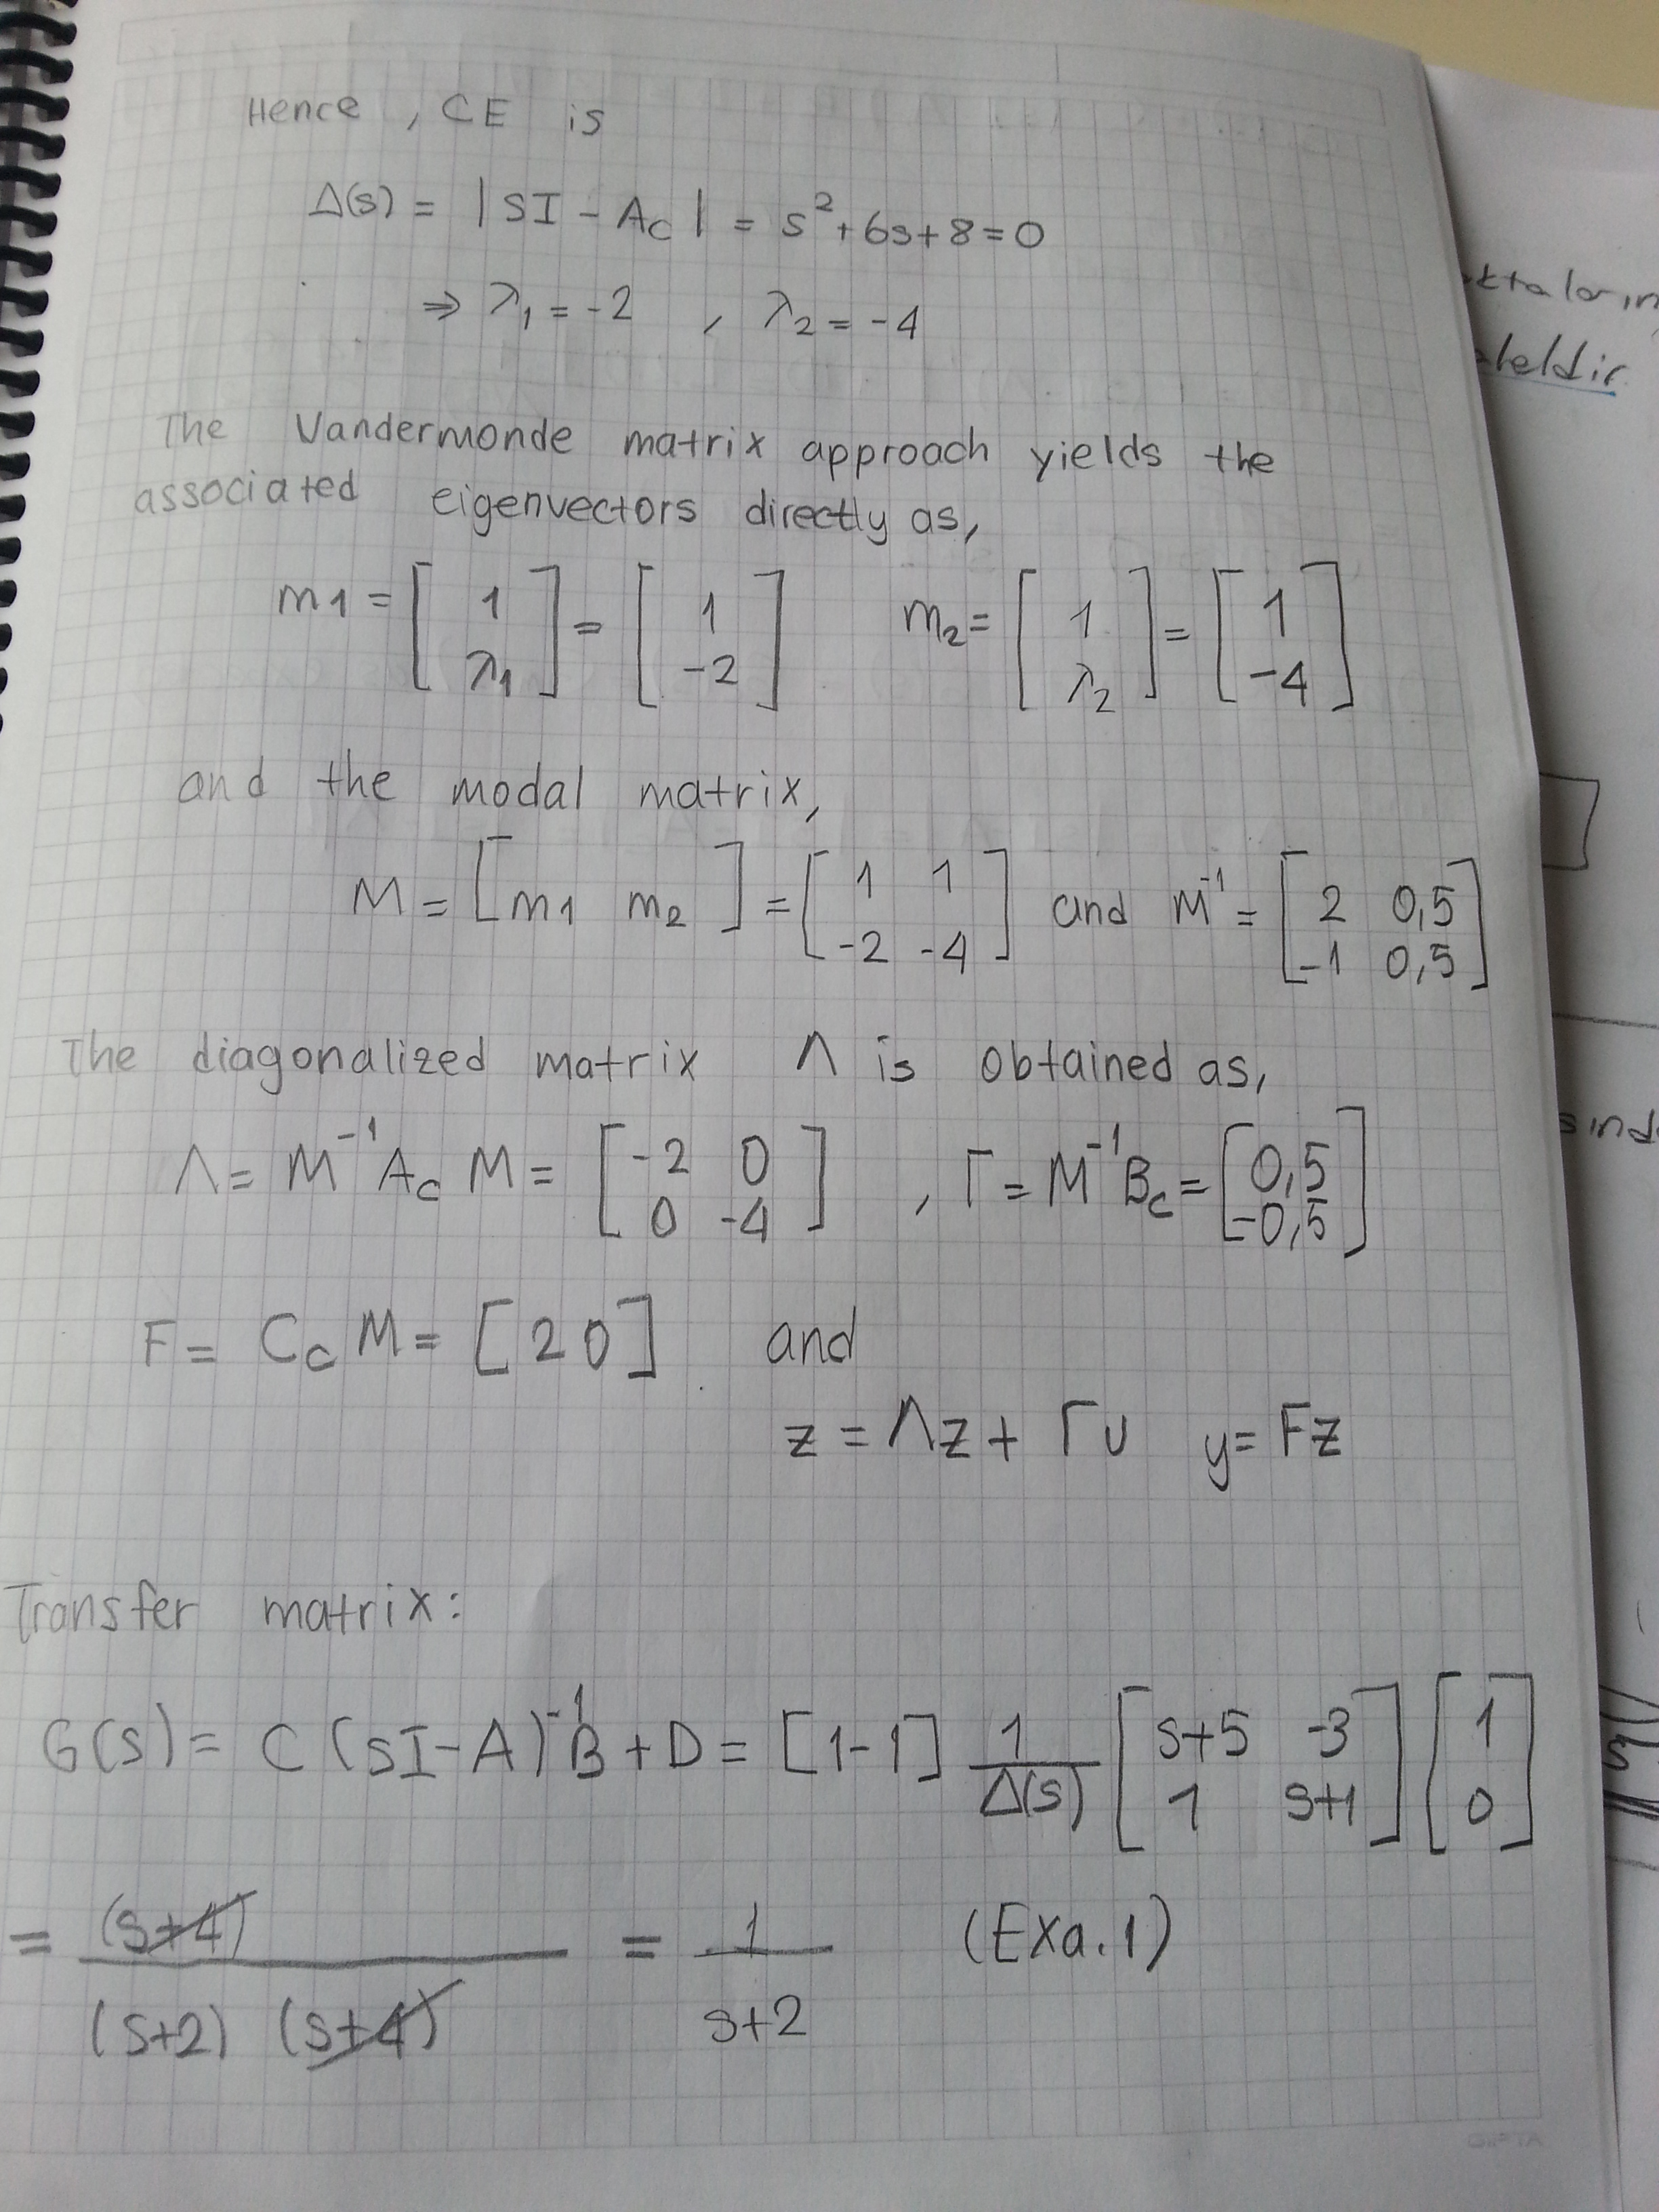 Hence, CE is
Δ(s) = |SI - Ac| = s²+6s+8=0
⇒ λ₁ = -2 , λ₂ = -4
The Vandermonde matrix approach yields the
associated eigenvectors directly as,
m1 = [1; λ₁] = [1; -2] m₂ = [1; λ₂] = [1; -4]
and the modal matrix,
M = [m1 m₂] = [1 1; -2 -4] and M⁻¹ = [2 0,5; -1 0,5]
The diagonalized matrix Λ is obtained as,
Λ = M⁻¹AcM = [-2 0; 0 -4] , Γ = M⁻¹Bc = [0,5; -0,5]
F = CcM = [2 0] and
z = Λz + ΓU y = Fz
Transfer matrix:
G(s) = C(sI-A)⁻¹B + D = [1 -1] 1/Δ(s) [s+5 -3; 1 s+1] [1; 0]
= (s+4)/(s+2)(s+4) = 1/s+2 (Exa.1)
eleldir